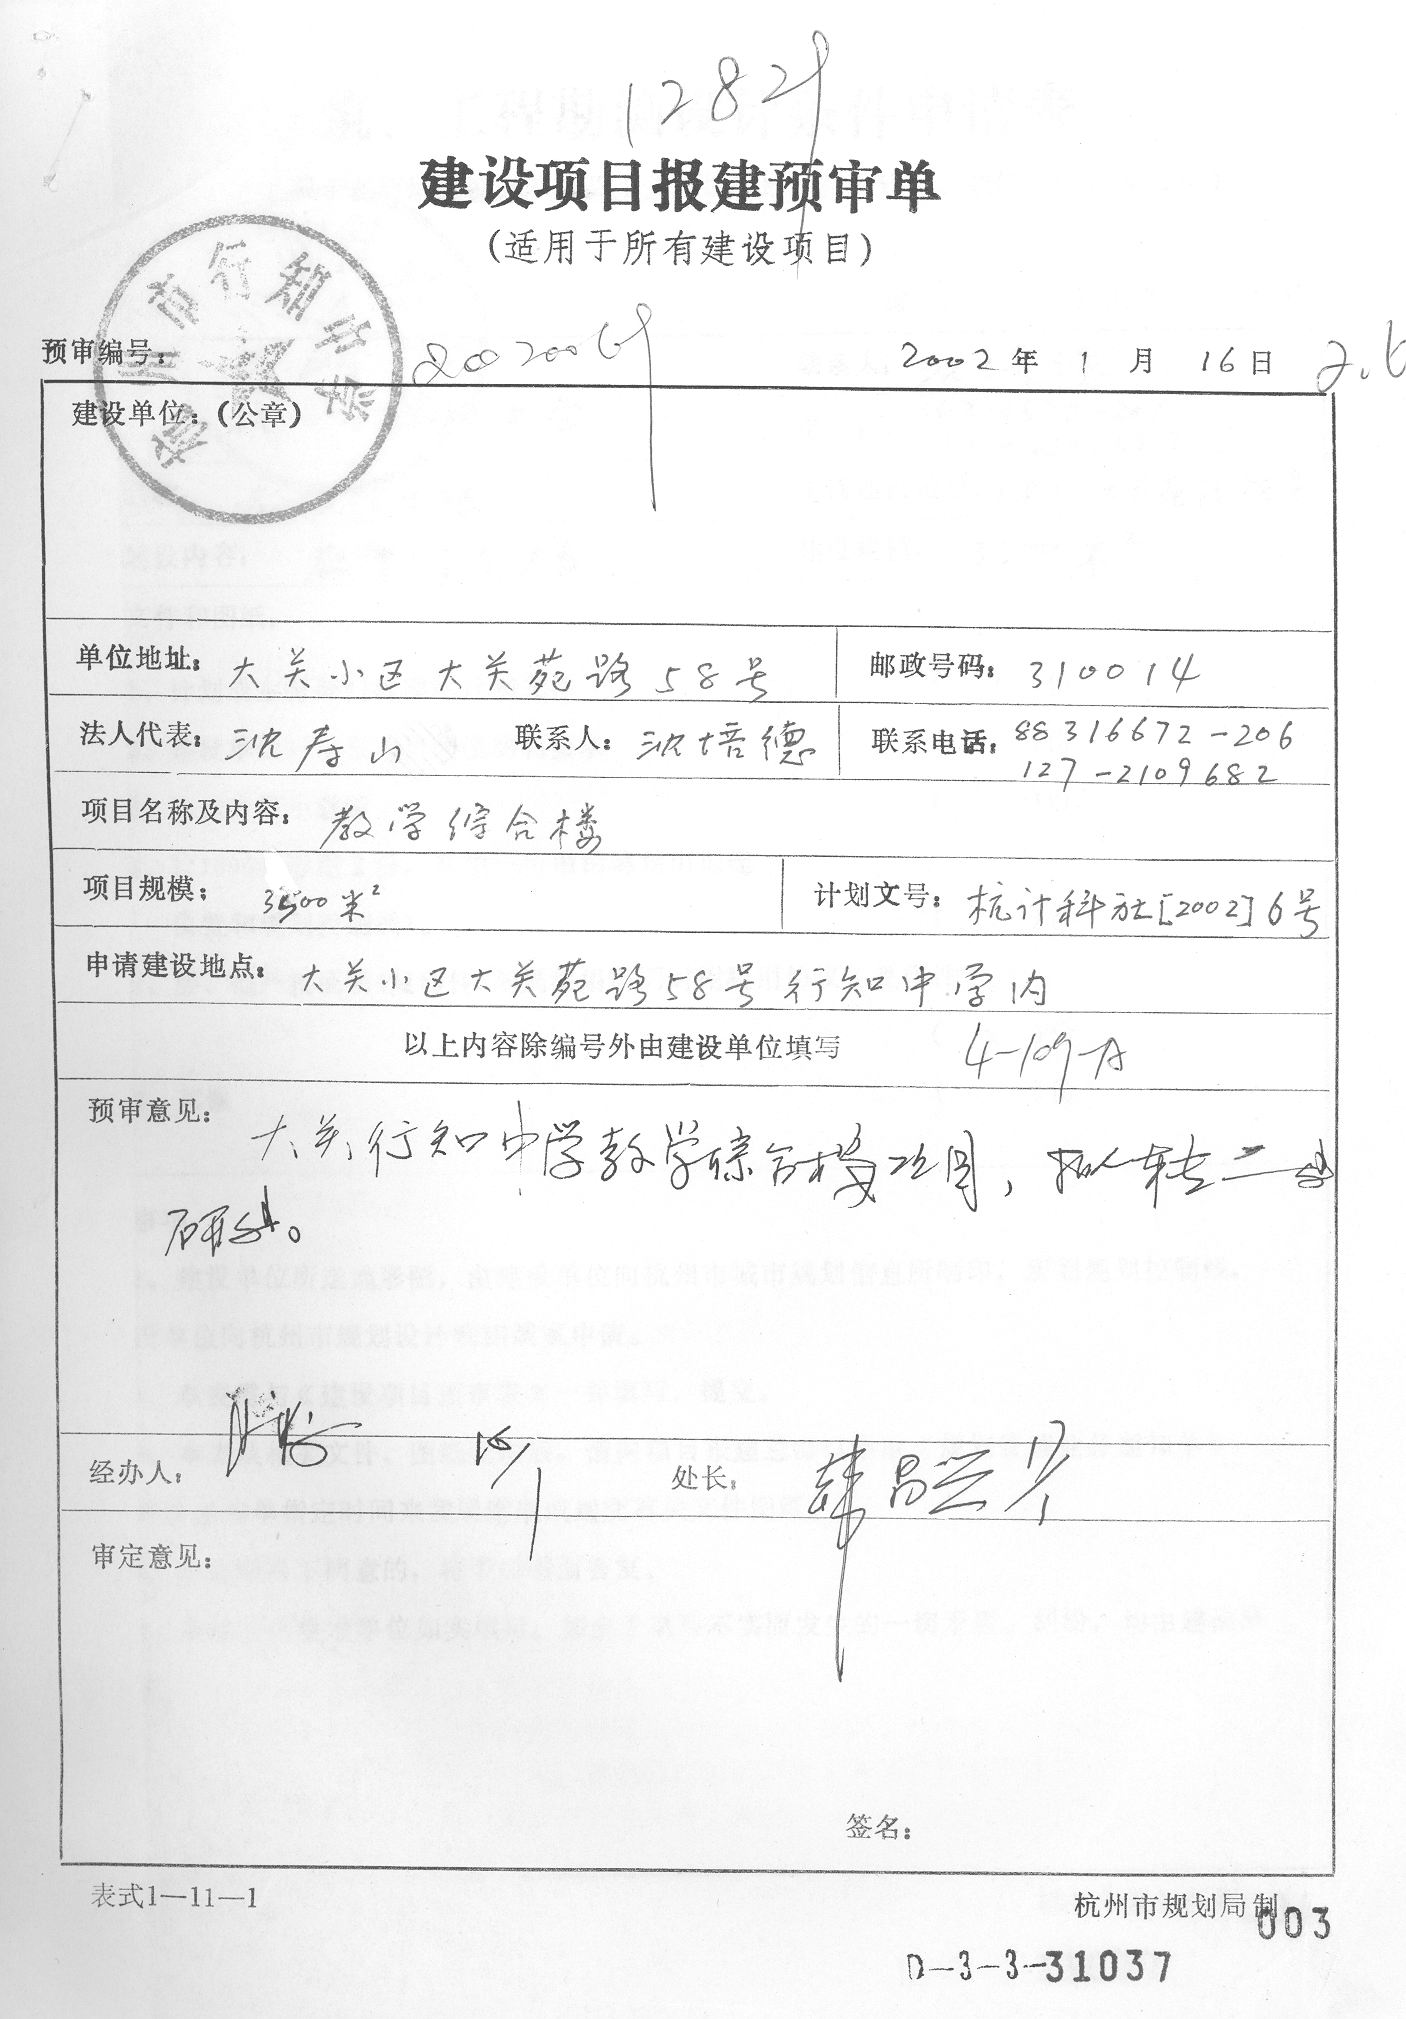 1282
建设项目报建预审单
(适用于所有建设项目)
杭州市行知中学
预审编号: 2002年1月16日
建设单位:(公章)
单位地址: 大关小区大关苑路58号 邮政号码: 310014
法人代表: 沈寿山 联系人: 沈培德 联系电话: 88316672-206
127-2109682
项目名称及内容: 教学综合楼
项目规模: 3500米² 计划文号: 杭计科社[2002]6号
申请建设地点: 大关小区大关苑路58号行知中学内
以上内容除编号外由建设单位填写 4-109-A
预审意见: 大关行知中学教学综合楼项目,拟转二处
研处。
经办人: 16/1 处长: 韩昌兴 17/1
审定意见:
签名:
表式1—11—1 杭州市规划局制
003
D-3-3-31037